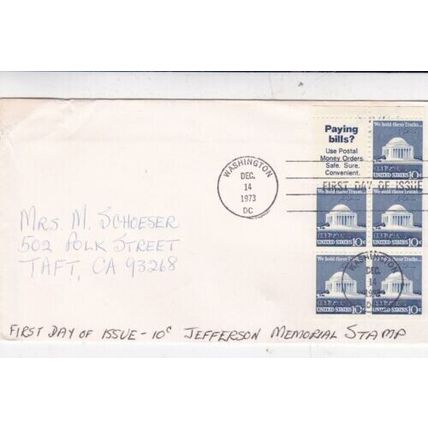 Paying
bills?
Use Postal
Money Orders.
Safe. Sure.
Convenient.
We hold these Truths...
UNITED STATES 10c
WASHINGTON
DEC.
14
1973
DC
FIRST DAY OF ISSUE
We hold these Truths...
UNITED STATES 10c
We hold these Truths...
UNITED STATES 10c
We hold these Truths...
UNITED STATES 10c
We hold these Truths...
UNITED STATES 10c
WASHINGTON
DEC.
14
MRS. M. SCHOESER
502 POLK STREET
TAFT, CA 93268
FIRST DAY OF ISSUE - 10c JEFFERSON MEMORIAL STAMP